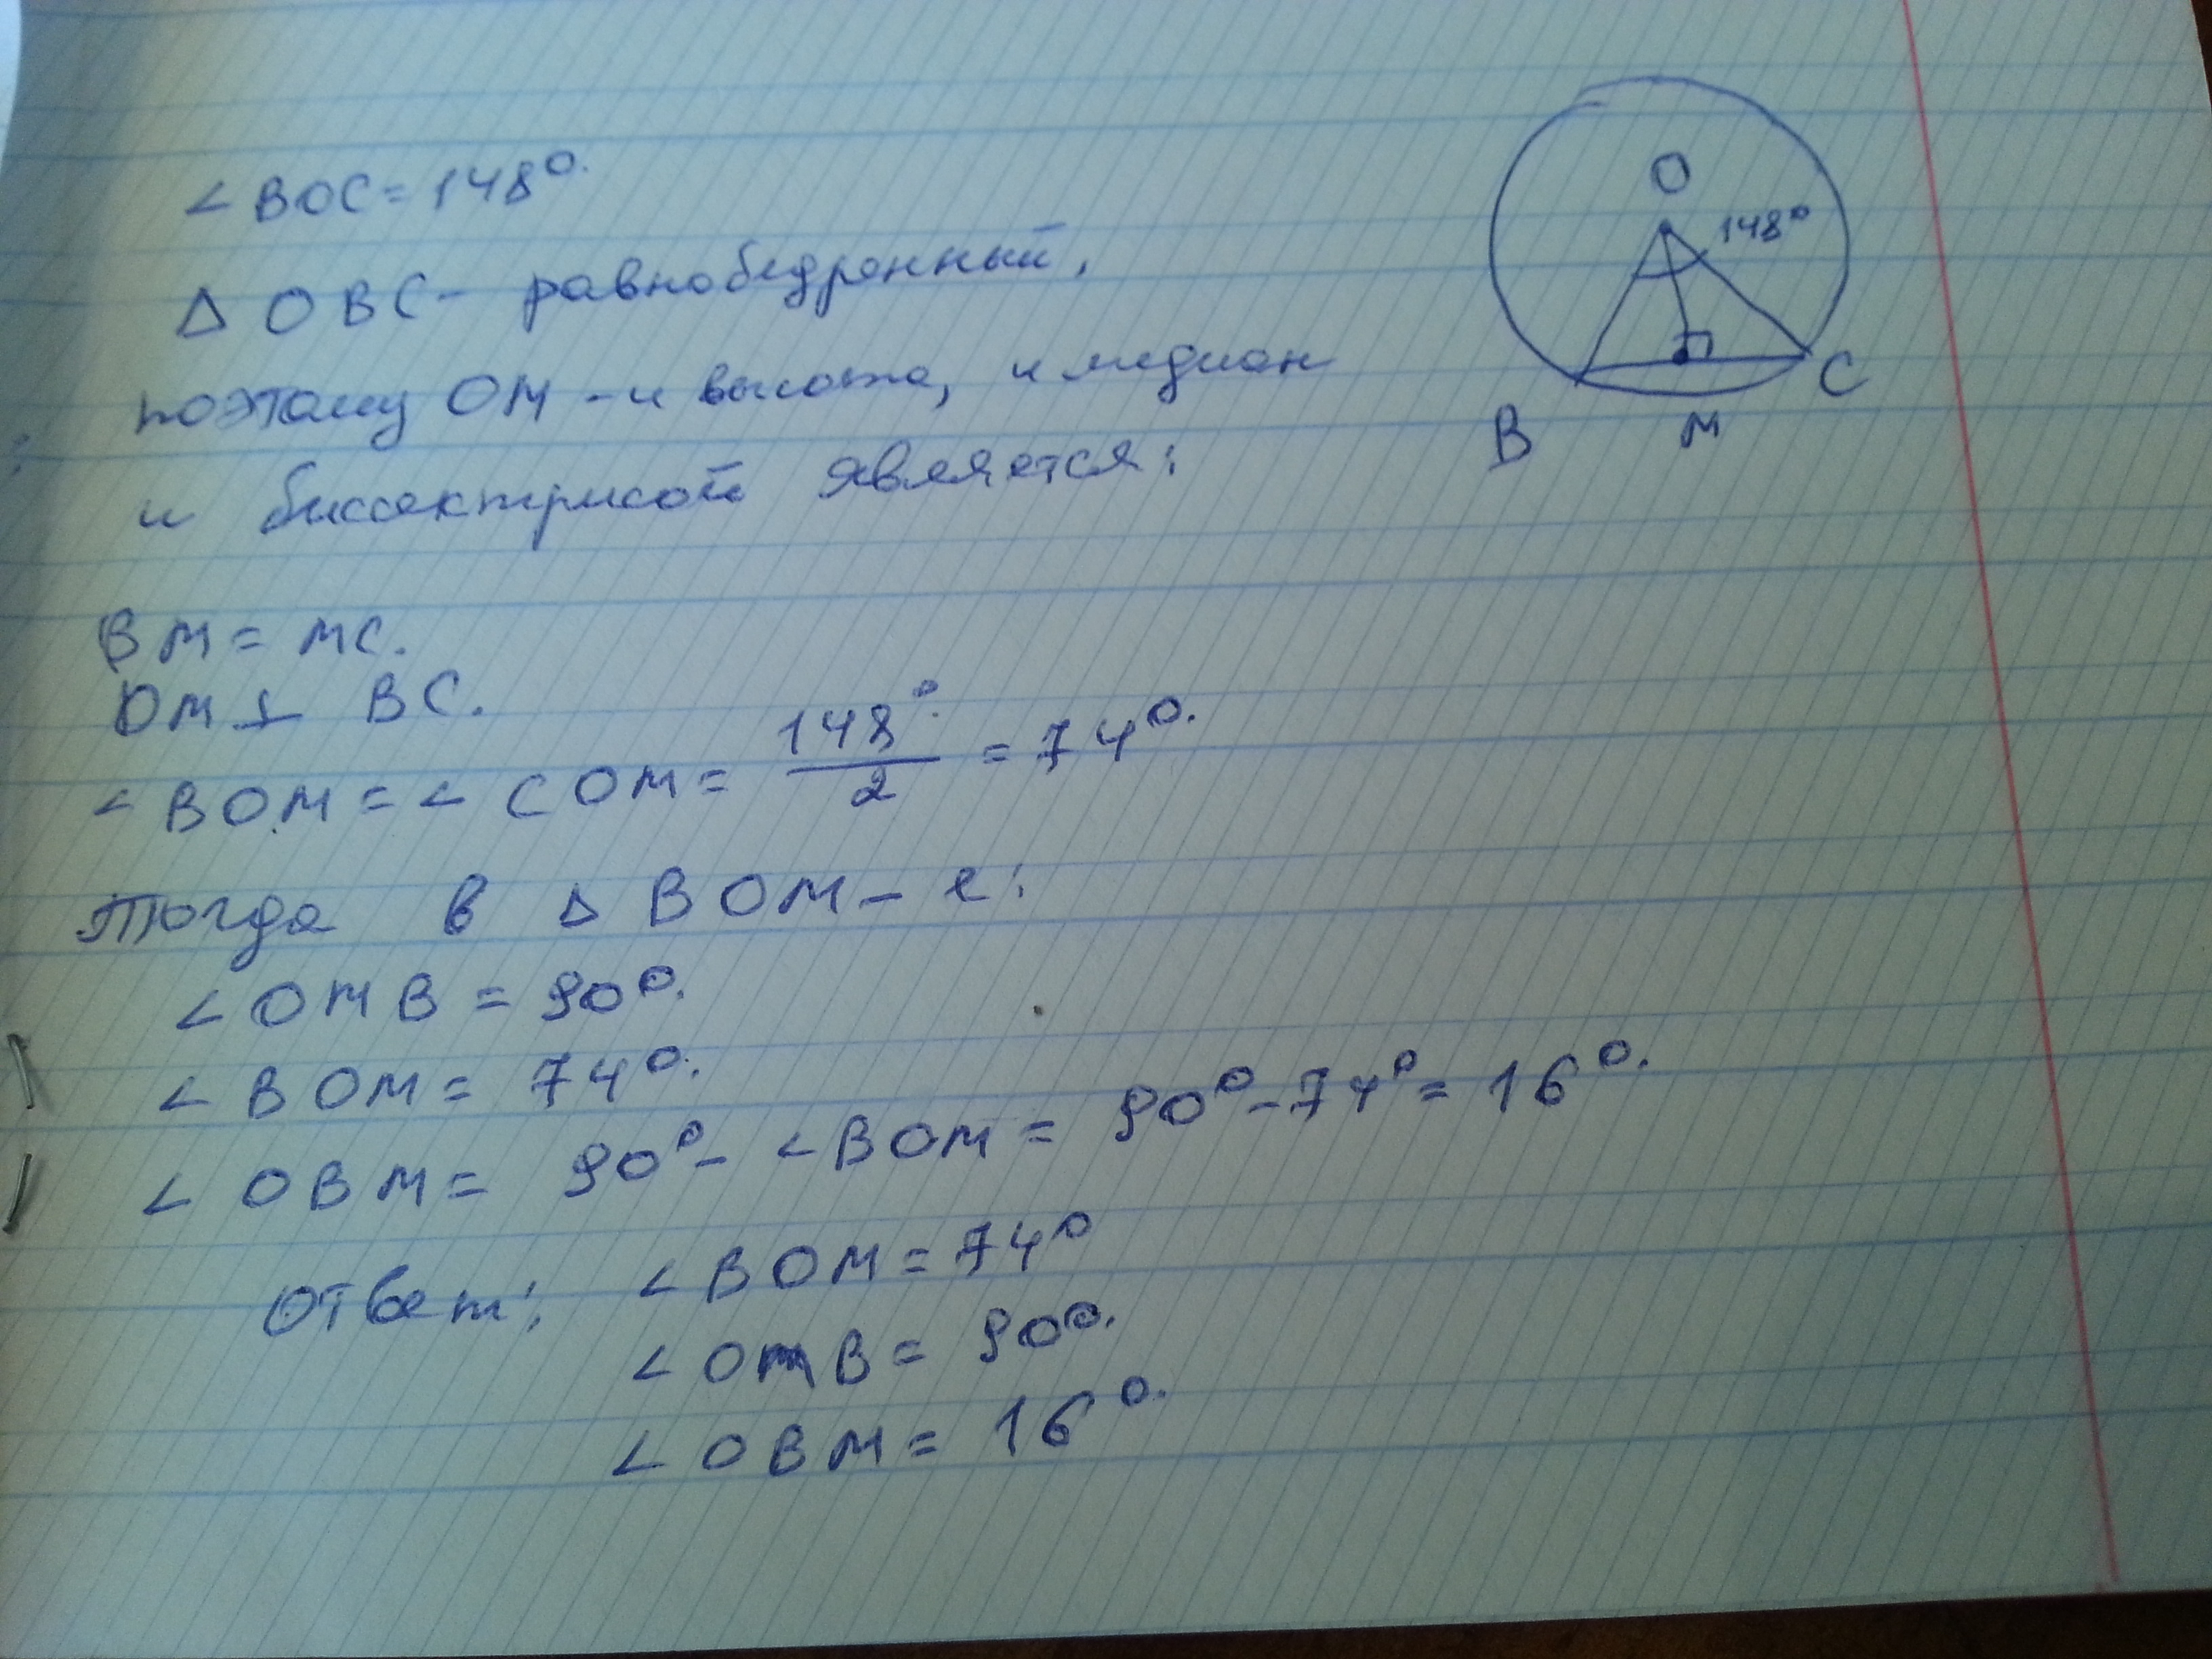 ∠ BOC = 148°.
Δ OBC - равнобедренный,
поэтому OM - и высота, и медиан
и биссектрисой является:
BM = MC.
OM ⊥ BC.
∠ BOM = ∠ COM = 148°/2 = 74°.
Тогда в Δ BOM - е:
∠ OMB = 90°.
∠ BOM = 74°.
∠ OBM = 90° - ∠ BOM = 90° - 74° = 16°.
Ответ: ∠ BOM = 74°
∠ OMB = 90°.
∠ OBM = 16°.
O
148°
C
B
M